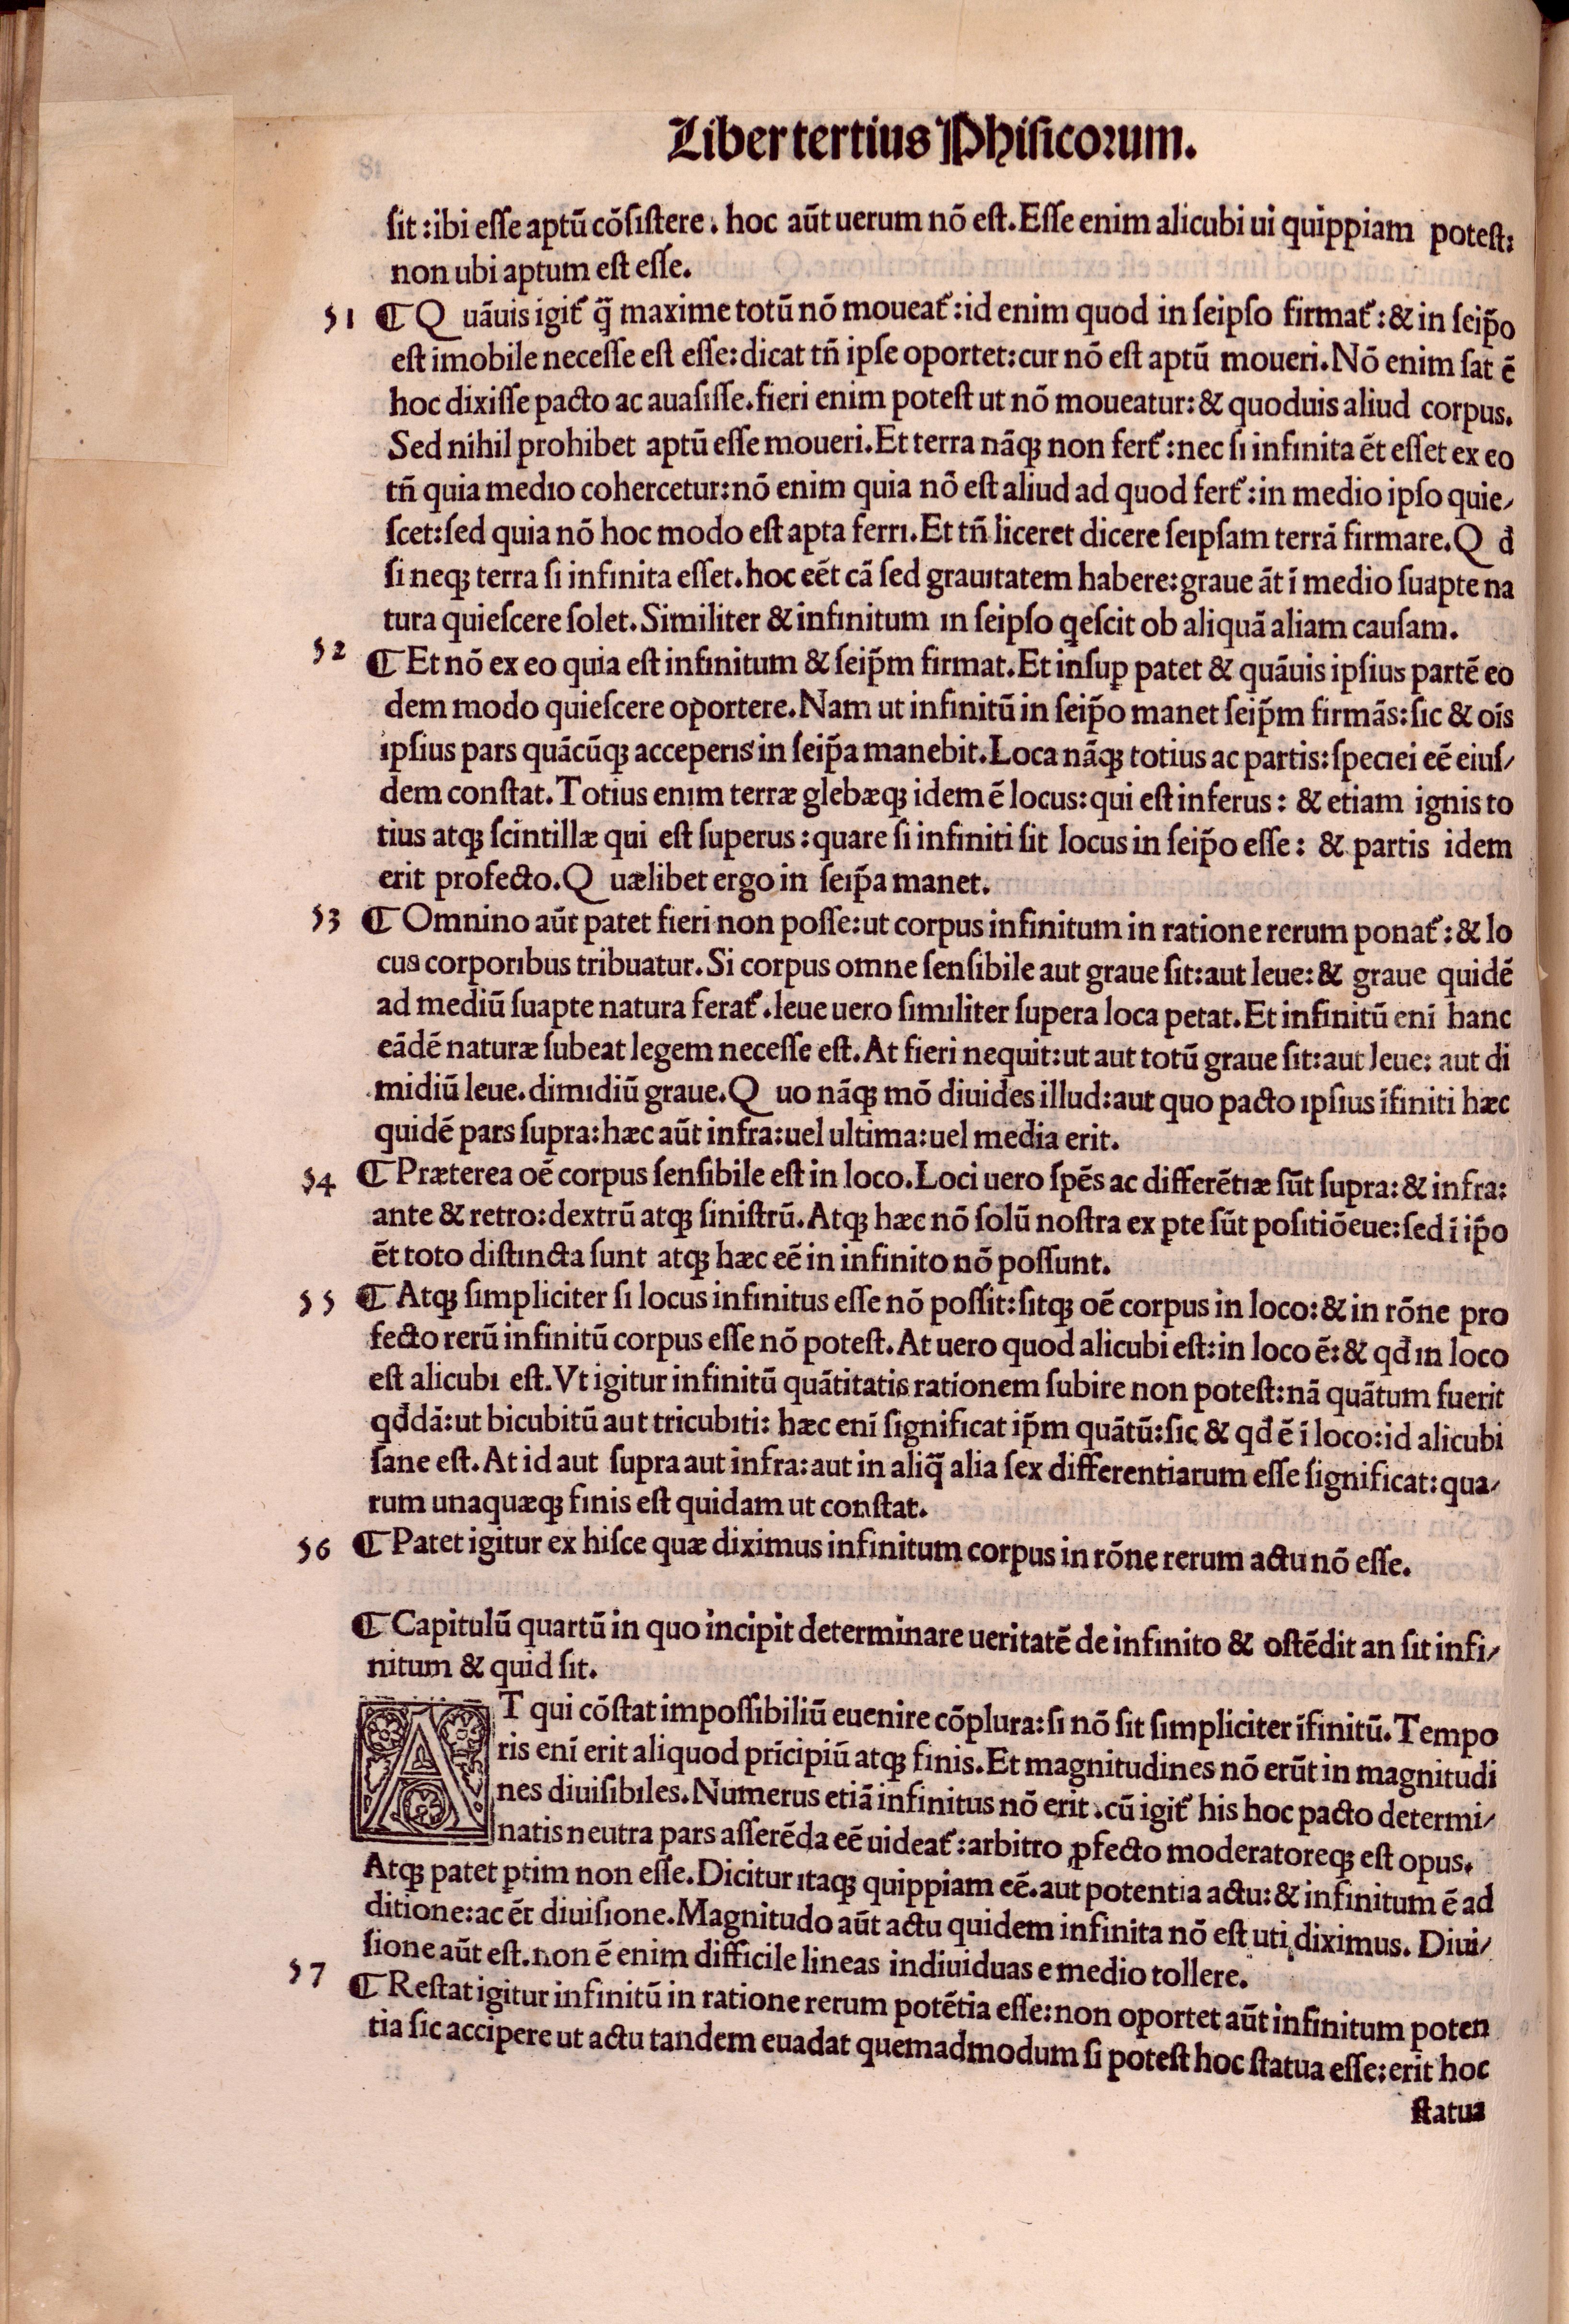 Liber tertius Phisicorum.
sit:ibi esse aptū cōsistere. hoc aūt uerum nō est. Esse enim alicubi ui quippiam potest:
non ubi aptum est esse.
51 ¶ Quāuis igit᷑ q̄ maxime totū nō moueat᷑:id enim quod in seipso firmat᷑:& in seip̄o
est imobile necesse est esse:dicat tn̄ ipse oportet:cur nō est aptū moueri. Nō enim sat ē
hoc dixisse pacto ac auasisse. fieri enim potest ut nō moueatur:& quoduis aliud corpus.
Sed nihil prohibet aptū esse moueri. Et terra nāqꝫ non fert᷑:nec si infinita ēt esset ex eo
tn̄ quia medio cohercetur:nō enim quia nō est aliud ad quod fert᷑:in medio ipso quie/
scet:sed quia nō hoc modo est apta ferri. Et tn̄ liceret dicere seipsam terrā firmare. Qđ
si neqꝫ terra si infinita esset. hoc eēt cā sed grauitatem habere:graue āt ī medio suapte na
tura quiescere solet. Similiter & infinitum in seipso qescit ob aliquā aliam causam.
52 ¶ Et nō ex eo quia est infinitum & seip̄m firmat. Et insuꝑ patet & quāuis ipsius partē eo
dem modo quiescere oportere. Nam ut infinitū in seip̄o manet seip̄m firmās:sic & oīs
ipsius pars quācūqꝫ acceperis in seip̄a manebit. Loca nāqꝫ totius ac partis:speciei eē eius/
dem constat. Totius enim terræ glebæqꝫ idem ē locus:qui est inferus: & etiam ignis to
tius atqꝫ scintillæ qui est superus:quare si infiniti sit locus in seip̄o esse: & partis idem
erit profecto. Quælibet ergo in seip̄a manet.
53 ¶ Omnino aūt patet fieri non posse:ut corpus infinitum in ratione rerum ponat᷑:& lo
cus corporibus tribuatur. Si corpus omne sensibile aut graue sit:aut leue:& graue quidē
ad mediū suapte natura ferat᷑. leue uero similiter supera loca petat. Et infinitū enī hanc
eādē naturæ subeat legem necesse est. At fieri nequit:ut aut totū graue sit:aut leue: aut di
midiū leue. dimidiū graue. Quo nāqꝫ mō diuides illud:aut quo pacto ipsius īfiniti hæc
quidē pars supra:hæc aūt infra:uel ultima:uel media erit.
54 ¶ Præterea oē corpus sensibile est in loco. Loci uero spēs ac differētiæ sūt supra:& infra:
ante & retro:dextrū atqꝫ sinistrū. Atqꝫ hæc nō solū nostra ex ꝑte sūt positiōeue:sed ī ip̄o
ēt toto distincta sunt atqꝫ hæc eē in infinito nō possunt.
55 ¶ Atqꝫ simpliciter si locus infinitus esse nō possit:sitqꝫ oē corpus in loco:& in rōne pro
fecto rerū infinitū corpus esse nō potest. At uero quod alicubi est:in loco ē:& qđ in loco
est alicubi est. Vt igitur infinitū quātitatis rationem subire non potest:nā quātum fuerit
qđdā:ut bicubitū aut tricubiti: hæc enī significat ip̄m quātū:sic & qđ ē ī loco:id alicubi
sane est. At id aut supra aut infra:aut in aliq̄ alia sex differentiarum esse significat:qua/
rum unaquæqꝫ finis est quidam ut constat.
56 ¶ Patet igitur ex hisce quæ diximus infinitum corpus in rōne rerum actu nō esse.
¶ Capitulū quartū in quo incipit determinare ueritatē de infinito & ostēdit an sit infi/
nitum & quid sit.
AT qui cōstat impossibiliū euenire cōplura:si nō sit simpliciter īfinitū. Tempo
ris enī erit aliquod prīcipiū atqꝫ finis. Et magnitudines nō erūt in magnitudi
nes diuisibiles. Numerus etiā infinitus nō erit. cū igit᷑ his hoc pacto determi/
natis neutra pars asserēda eē uideat᷑:arbitro ꝓfecto moderatoreqꝫ est opus.
Atqꝫ patet ꝑtim non esse. Dicitur itaqꝫ quippiam eē. aut potentia actu:& infinitum ē ad
ditione:ac ēt diuisione. Magnitudo aūt actu quidem infinita nō est uti diximus. Diui/
sione aūt est. non ē enim difficile lineas indiuiduas e medio tollere.
57 ¶ Restat igitur infinitū in ratione rerum potētia esse:non oportet aūt infinitum poten
tia sic accipere ut actu tandem euadat quemadmodum si potest hoc statua esse:erit hoc
statua